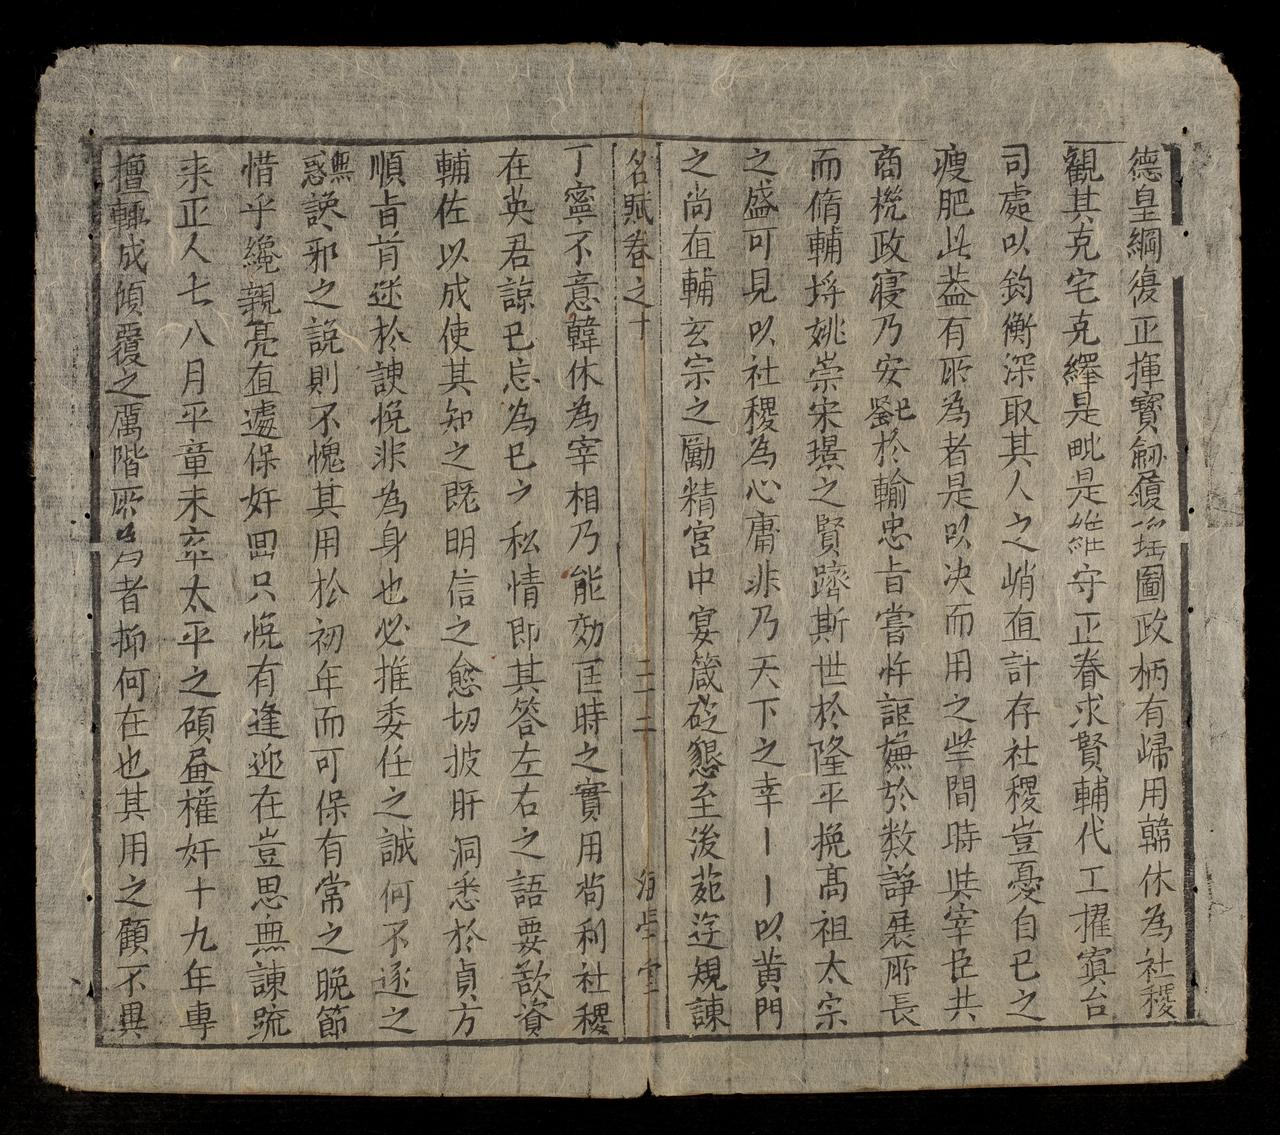 德皇綱復正揮寶劒圖政柄有歸用韓休為社稷
觀其克宅克繹是毗是維守正眷求賢輔代工擢寘台
司處以鈞衡深取其人之峭直計存社稷豈憂自己之
瘦肥此盖有所為者是以决而用之些間時共宰臣共
商梲政寢乃安劉於輸忠旨嘗忤謳㒇於数諍展所長
而脩輔将姚崇宋璟之賢躋斯世於隆平挽高祖太宗
之盛可見以社稷為心庸非乃天下之幸〡〡以黄門
之尚直輔玄宗之勵精宮中宴箴䃏懇至後苑迕規諌
名賦卷之十 三二 海學堂
丁寧不意韓休為宰相乃能効匡時之實用苟利社稷
在英君諒已忘為已之私情即其答左右之語要歆資
輔佐以成使其知之既明信之愈切披肝洞悉於貞方
順旨肯迷於諛悅非為身也必推委任之誠何不逐之
惑無䛠邪之説則不愧其用於初年而可保有常之晚節
惜乎纔親亮直遽保奸回只悅有逢迎在豈思無諌䟽
来正人七八月平章未卒太平之碩畐權奸十九年專
擅輙成傾覆之厲階所為者抑何在也其用之顧不異